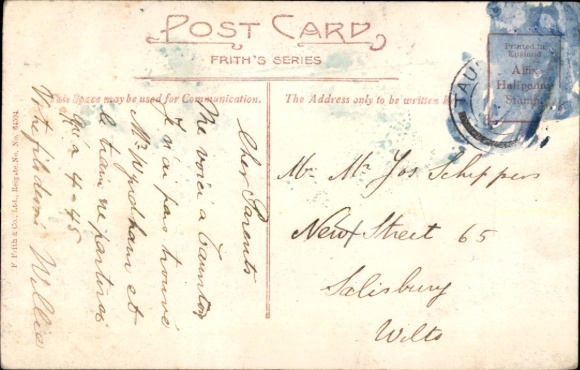 POST CARD
FRITH'S SERIES
This Space may be used for Communication.
The Address only to be written
Printed in
England
Affix
Halfpenny
Stamp
TAU
F. Frith & Co., Ltd., Reigate. No. 64504
Cher Parents
Me voici a Taunton
J n'ai pas trouvé
Mr Wyndham et
le train ne partirai
qu'a 4-45
Votre fils dévoué Willie
Mr. Mc Jos. Schippers
New Street 65
Salisbury
Wilts